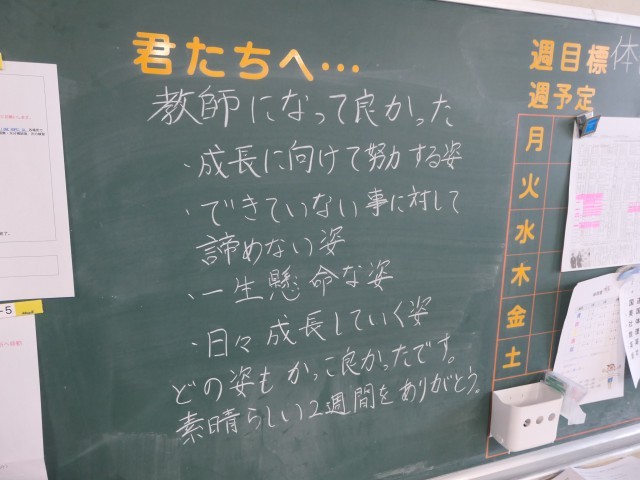 君たちへ…
教師になって良かった
・成長に向けて努力する姿
・できていない事に対して
諦めない姿
・一生懸命な姿
・日々成長していく姿
どの姿もかっこ良かったです。
素晴らしい2週間をありがとう。
週目標 体
週予定
月
火
水
木
金
土